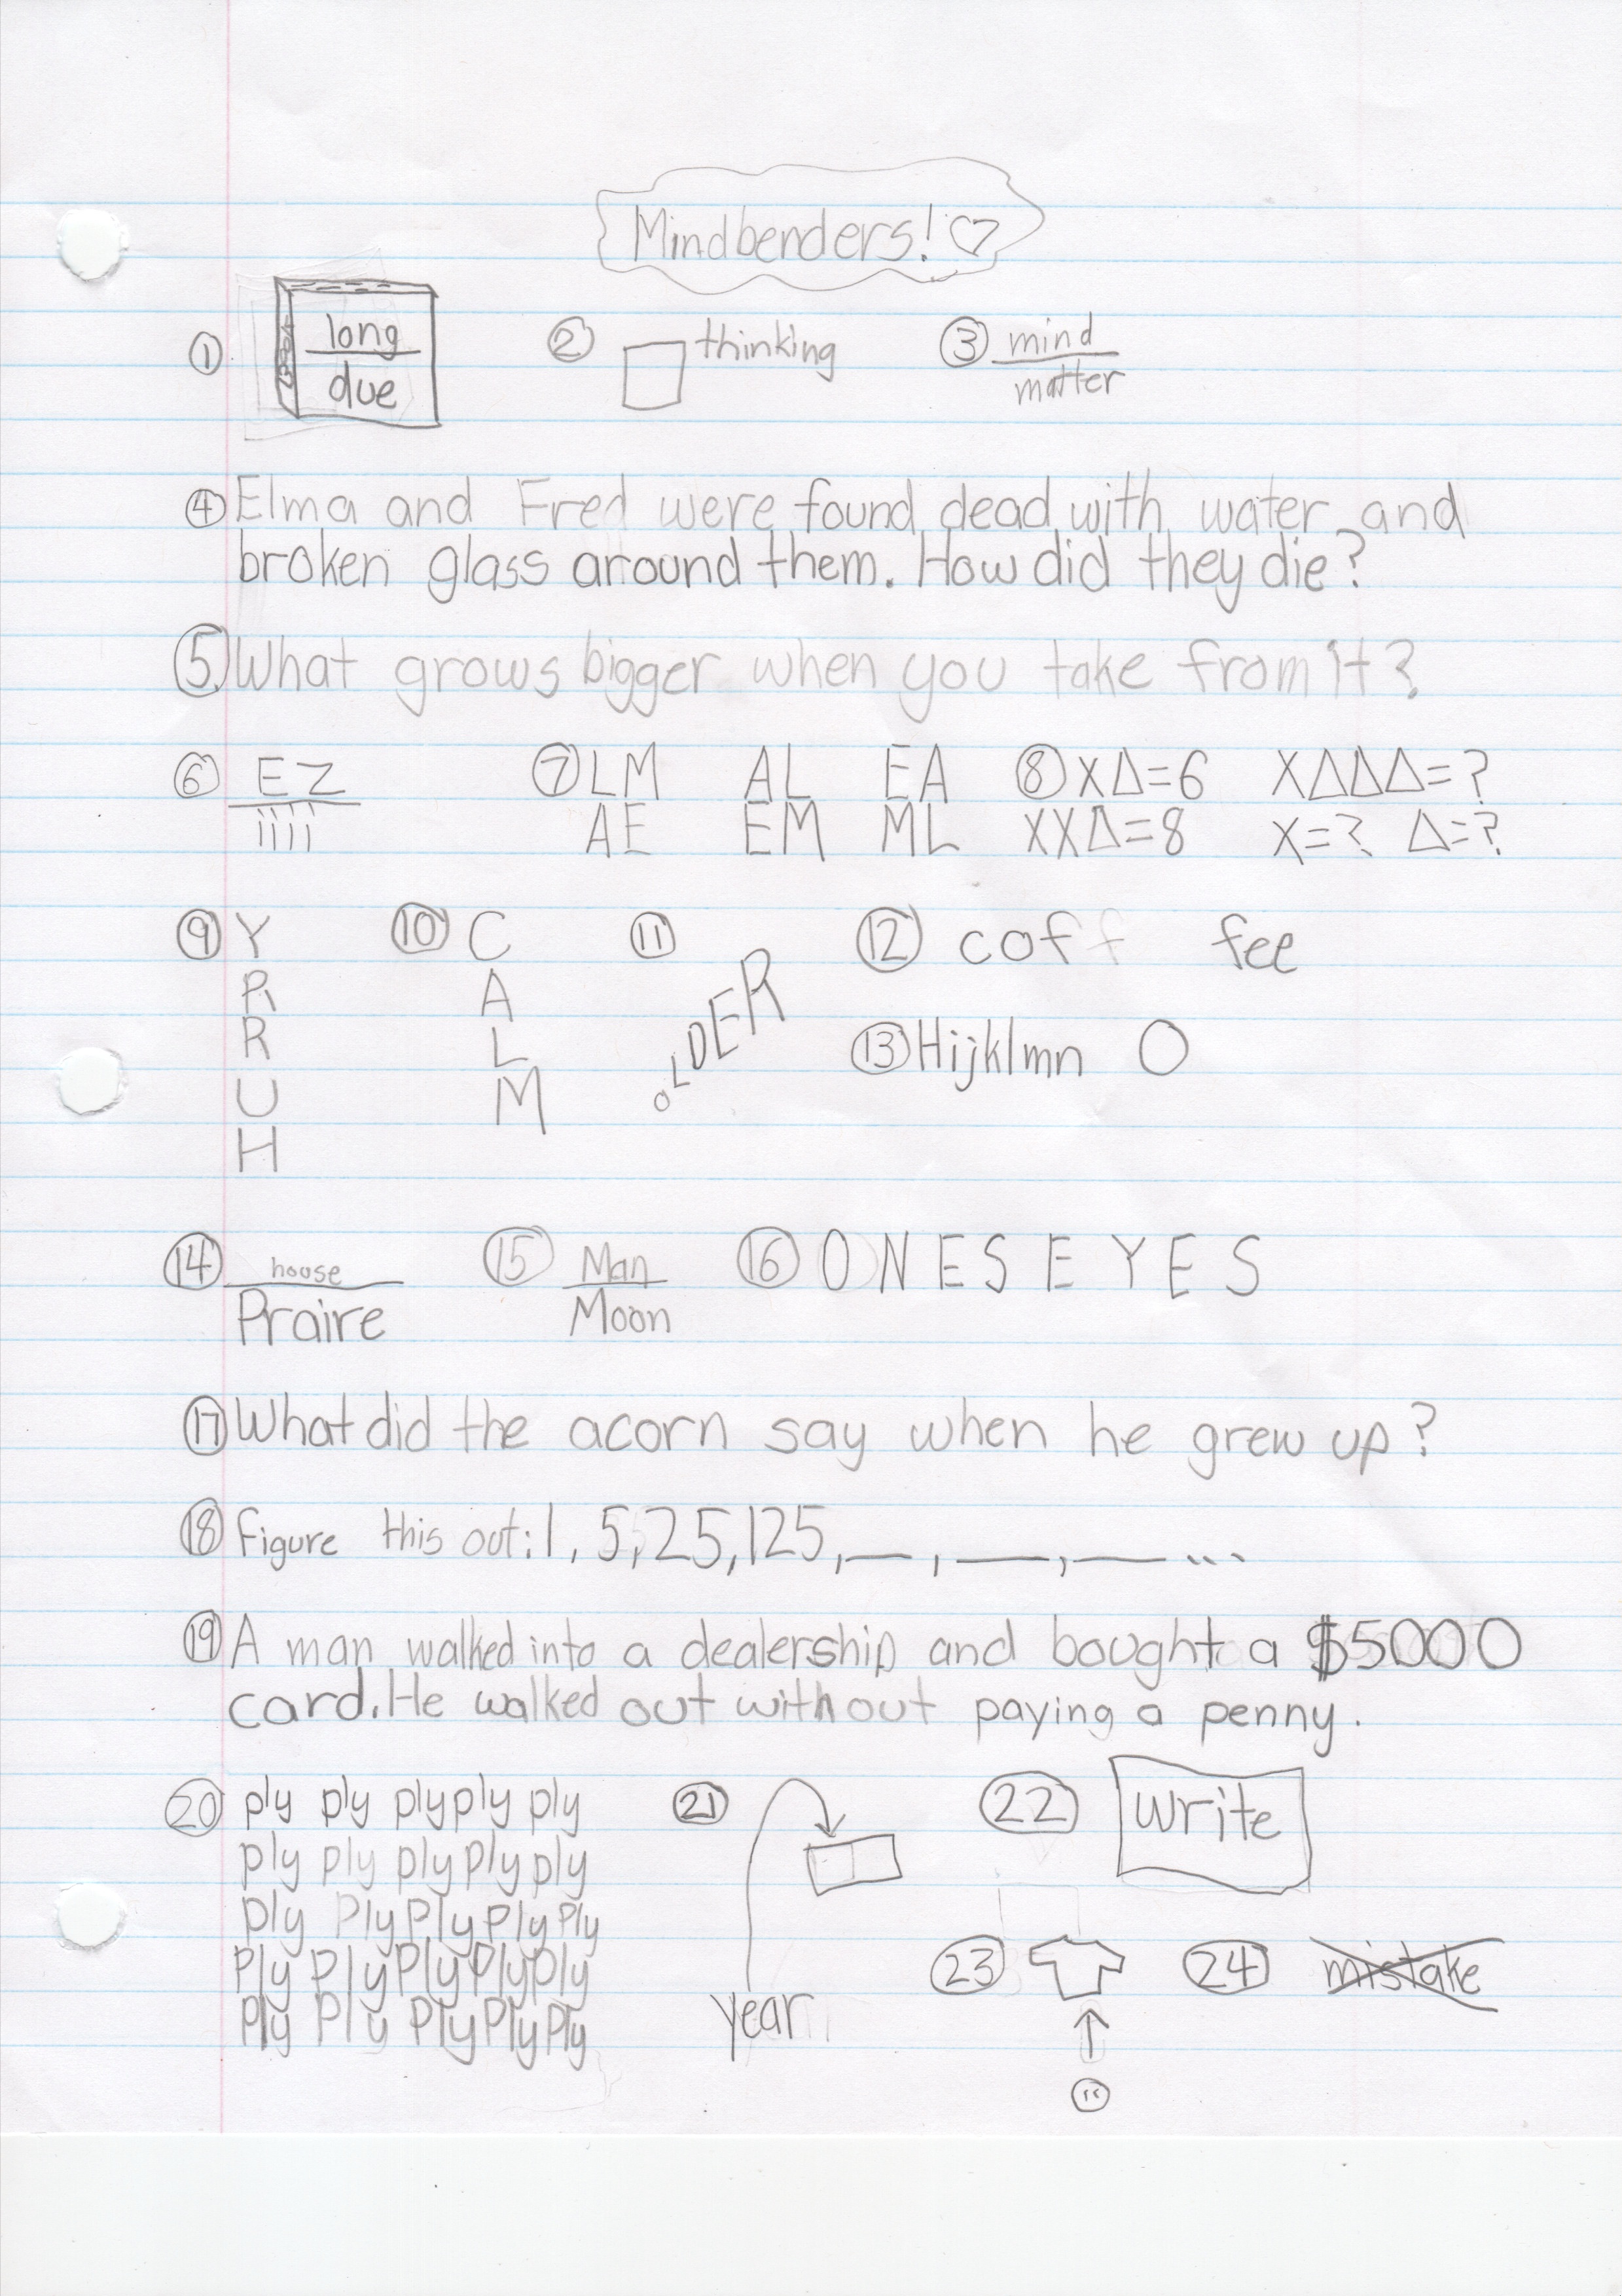 Mindbenders! ♡
① long
due
② thinking
③ mind
matter
④ Elma and Fred were found dead with water and
broken glass around them. How did they die?
⑤ What grows bigger when you take from it?
⑥ EZ
iiii
⑦ LM AL EA
AE EM ML
⑧ X△=6 X△△△=?
XX△=8 X=? △=?
⑨ Y
R
R
U
H
⑩ C
A
L
M
⑪ OLDER
⑫ coff fee
⑬ Hijklmn O
⑭ house
Praire
⑮ Man
Moon
⑯ O N E S E Y E S
⑰ What did the acorn say when he grew up?
⑱ Figure this out: 1, 5, 25, 125, __, __, __ ...
⑲ A man walked into a dealership and bought a $5000
card. He walked out without paying a penny.
⑳ ply ply ply ply ply
ply ply ply ply ply
ply ply ply ply ply
ply ply ply ply ply
ply ply ply ply ply
㉑ year
㉒ write
㉓
㉔ mistake